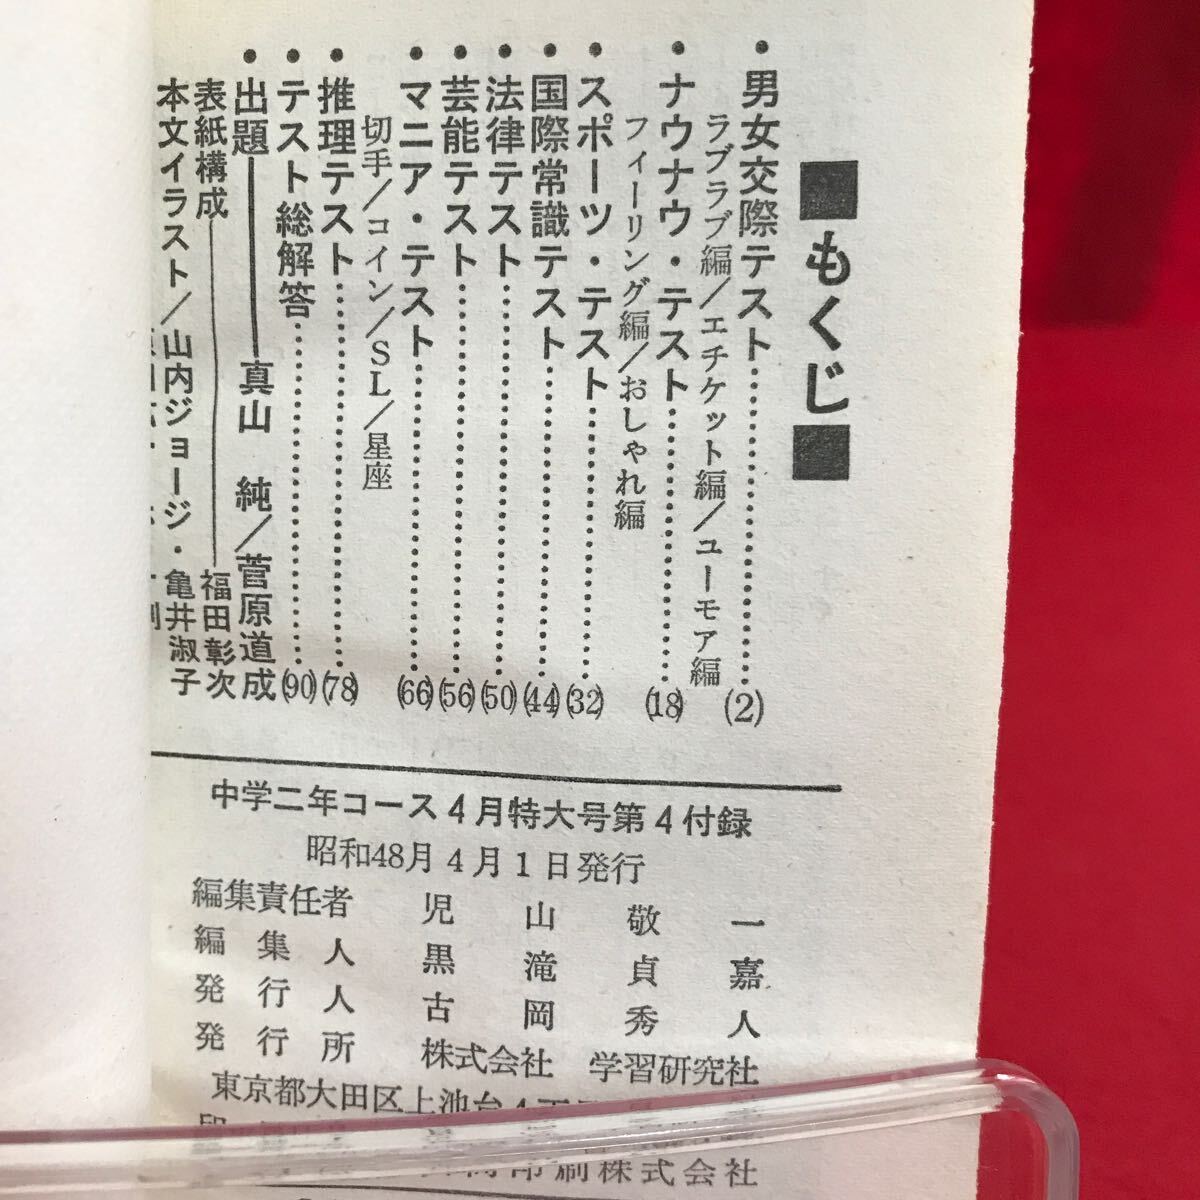 ■もくじ■
・男女交際テスト……(2)
ラブラブ編/エチケット編/ユーモア編
・ナウナウ・テスト……(18)
フィーリング編/おしゃれ編
・スポーツ・テスト……(32)
・国際常識テスト……(44)
・法律テスト……(50)
・芸能テスト……(56)
・マニア・テスト……(66)
切手/コイン/SL/星座
・推理テスト……(78)
・テスト総解答……(90)
・出題――真山 純/菅原道成
表紙構成――福田彰次
本文イラスト/山内ジョージ・亀井淑子
中学二年コース4月特大号第4付録
昭和48月4月1日発行
編集責任者 児山敬一
編集人 黒滝貞嘉
発行人 古岡秀人
発行所 株式会社 学習研究社
東京都大田区上池台4
印刷株式会社